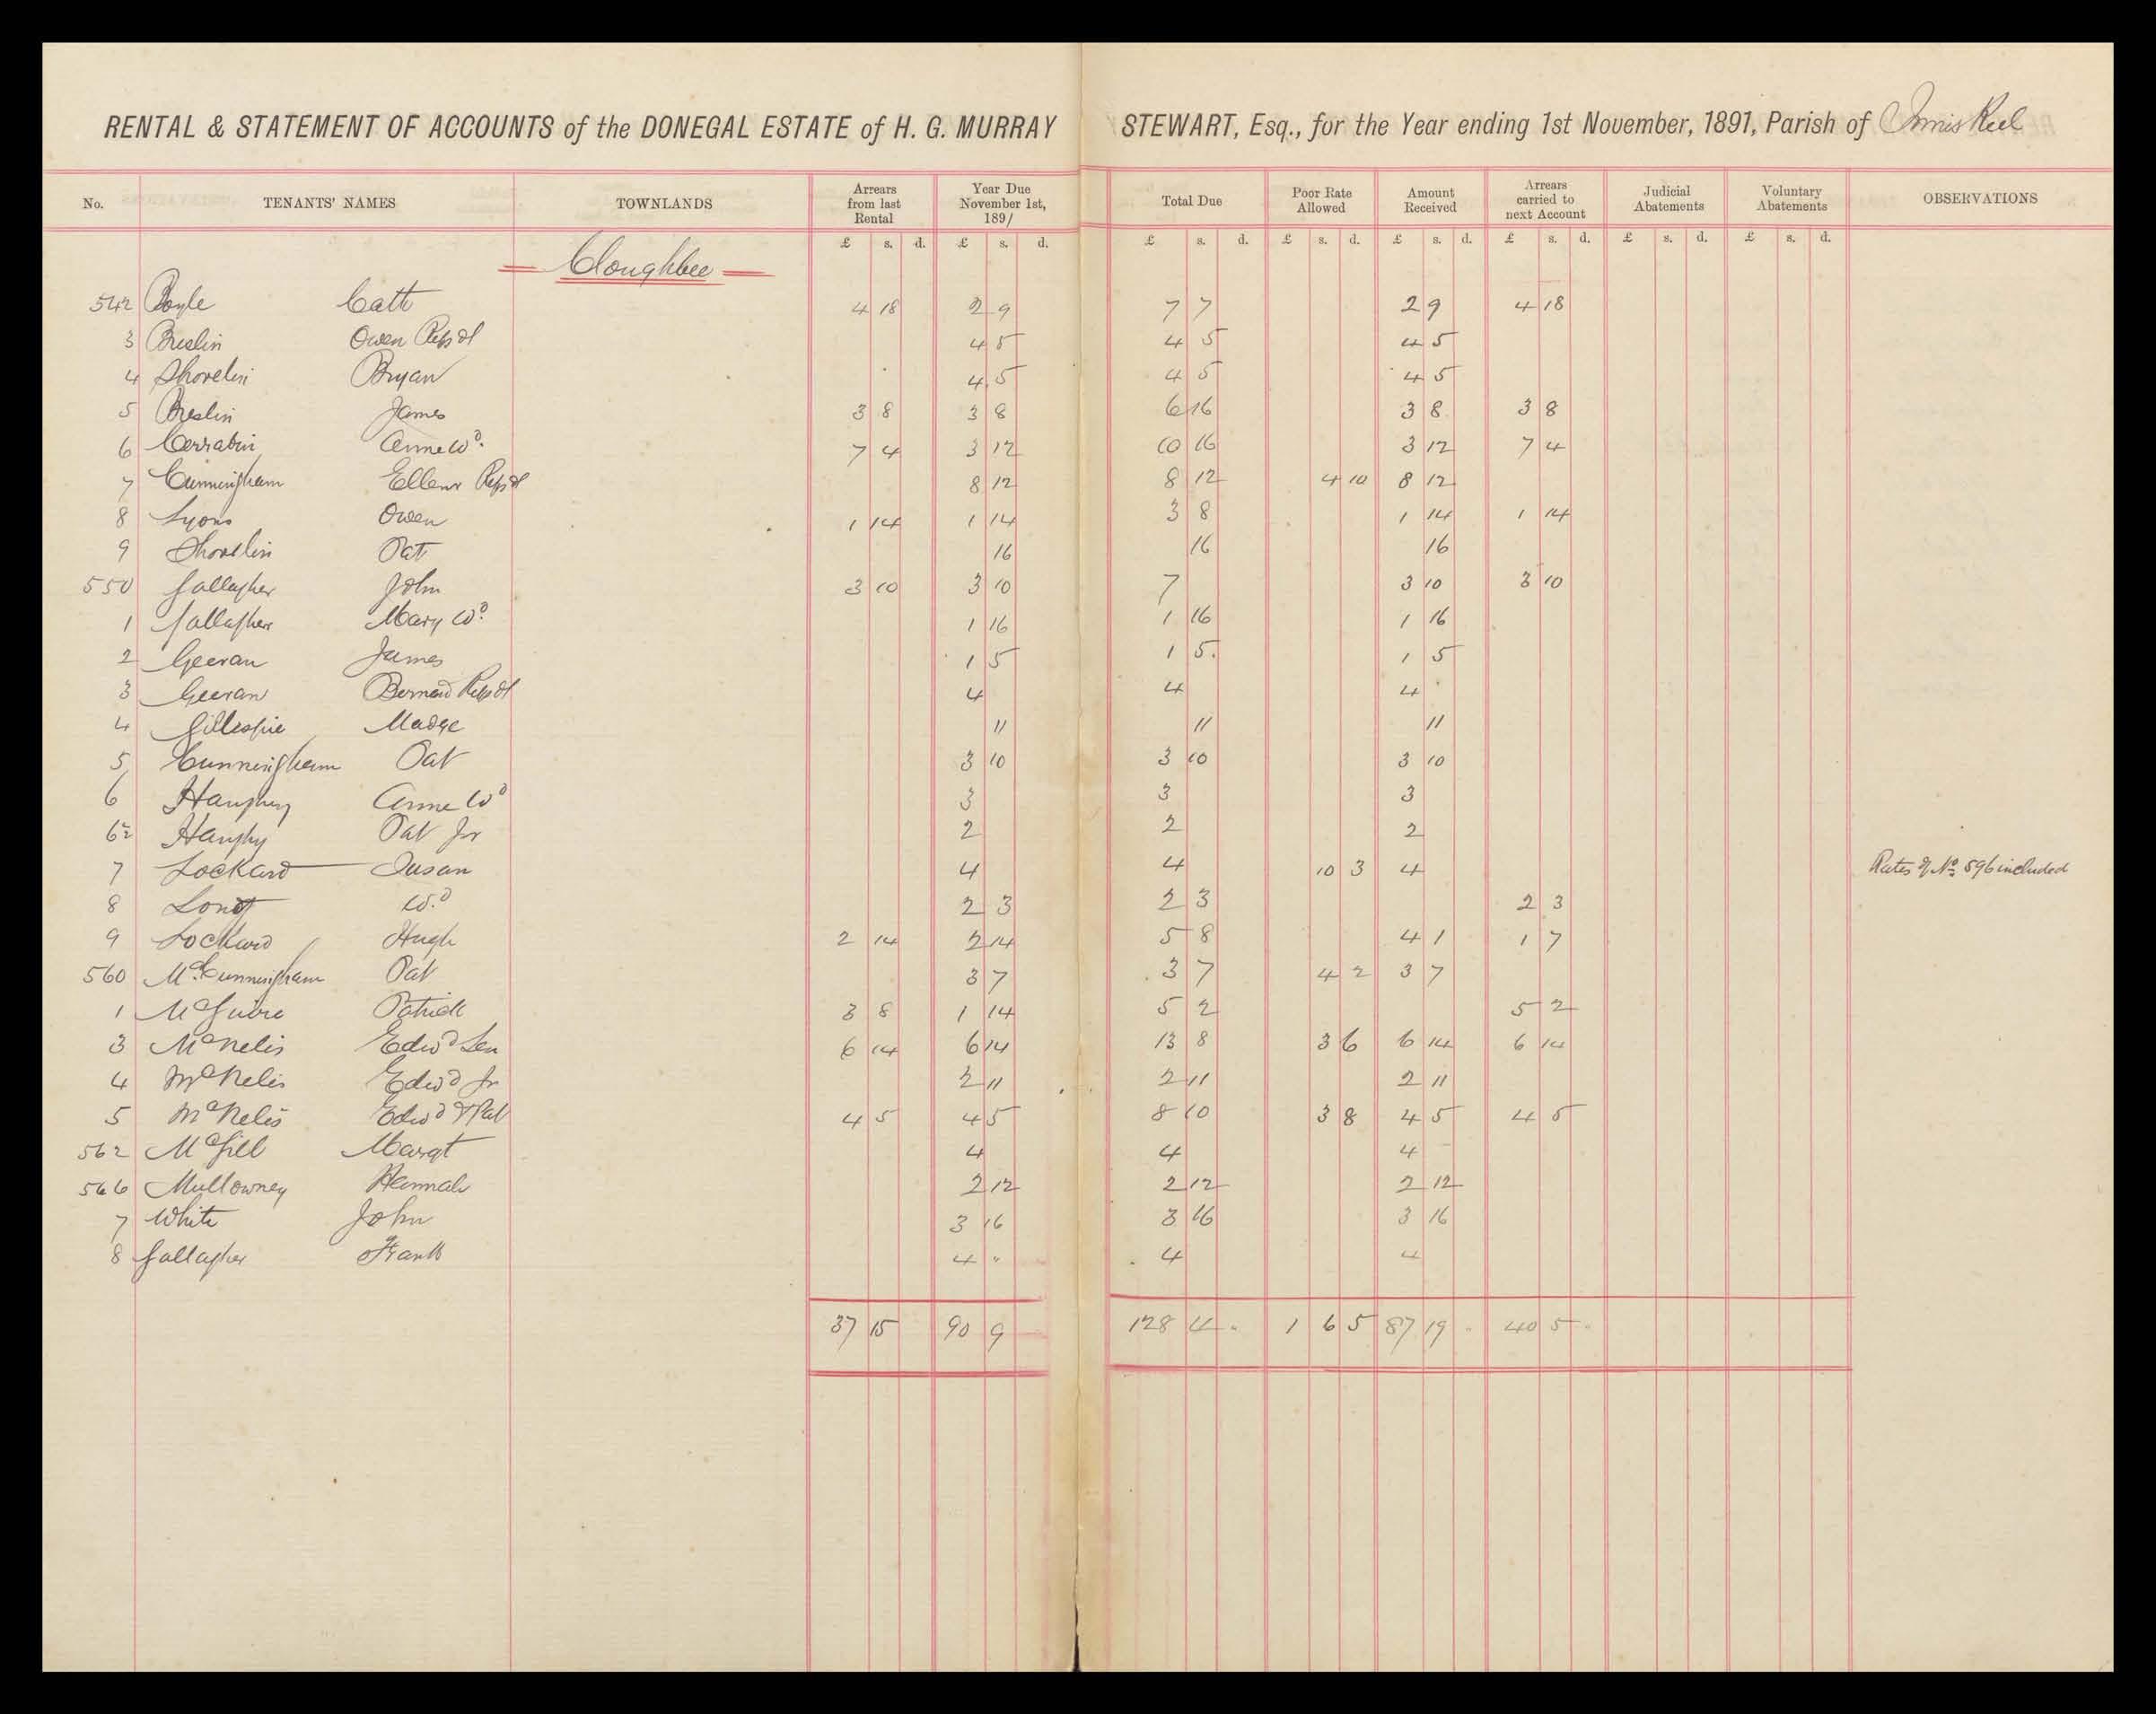 RENTAL & STATEMENT OF ACCOUNTS of the DONEGAL ESTATE of H. G. MURRAY STEWART, Esq., for the Year ending 1st November, 1891, Parish of Inniskeel
No. TENANTS' NAMES TOWNLANDS Arrears from last Rental Year Due November 1st, 1891 Total Due Poor Rate Allowed Amount Received Arrears carried to next Account Judicial Abatements Voluntary Abatements OBSERVATIONS
£ s. d. £ s. d. £ s. d. £ s. d. £ s. d. £ s. d. £ s. d. £ s. d.
Cloughbee
542 Boyle Cath 4 18 2 9 7 7 2 9 4 18
3 Breslin Owen Reps of 4 5 4 5 4 5
4 Shovelin Bryan 4 5 4 5 4 5
5 Breslin James 3 8 3 8 6 16 3 8 3 8
6 Cerrabin Anne Wd. 7 4 3 12 10 16 3 12 7 4
7 Cunningham Ellenr Reps of 8 12 8 12 4 10 8 12
8 Lyons Owen 1 14 1 14 3 8 1 14 1 14
9 Shovelin Pat 16 16 16
550 Gallagher John 3 10 3 10 7 3 10 3 10
1 Gallagher Mary Wd. 1 16 1 16 1 16
2 Geeran James 1 5 1 5. 1 5
3 Geeran Bernard Reps of 4 4 4
4 Gillespie Madge 11 11 11
5 Cunningham Pat 3 10 3 10 3 10
6 Haughey Anne Wd 3 3 3
6½ Haughy Pat Jr 2 2 2
7 Lockard Susan 4 4 10 3 4 Rates of No. 596 included
8 Long Wd. 2 3 2 3 2 3
9 Lockard Hugh 2 14 2 14 5 8 4 1 1 7
560 McCunningham Pat 3 7 3 7 4 2 3 7
1 McGuire Patrick 3 8 1 14 5 2 5 2
3 McNelis Edwd Sen 6 14 6 14 13 8 3 6 6 14 6 14
4 McNelis Edwd Jr 2 11 2 11 2 11
5 McNelis Edwd & Pat 4 5 4 5 8 10 3 8 4 5 4 5
562 McGill Margt 4 4 4
566 Mullowney Hannah 2 12 2 12 2 12
7 White John 3 16 3 16 3 16
8 Gallagher Frank 4 " 4 4
37 15 90 9 128 4 . 1 6 5 87 19 . 40 5 .